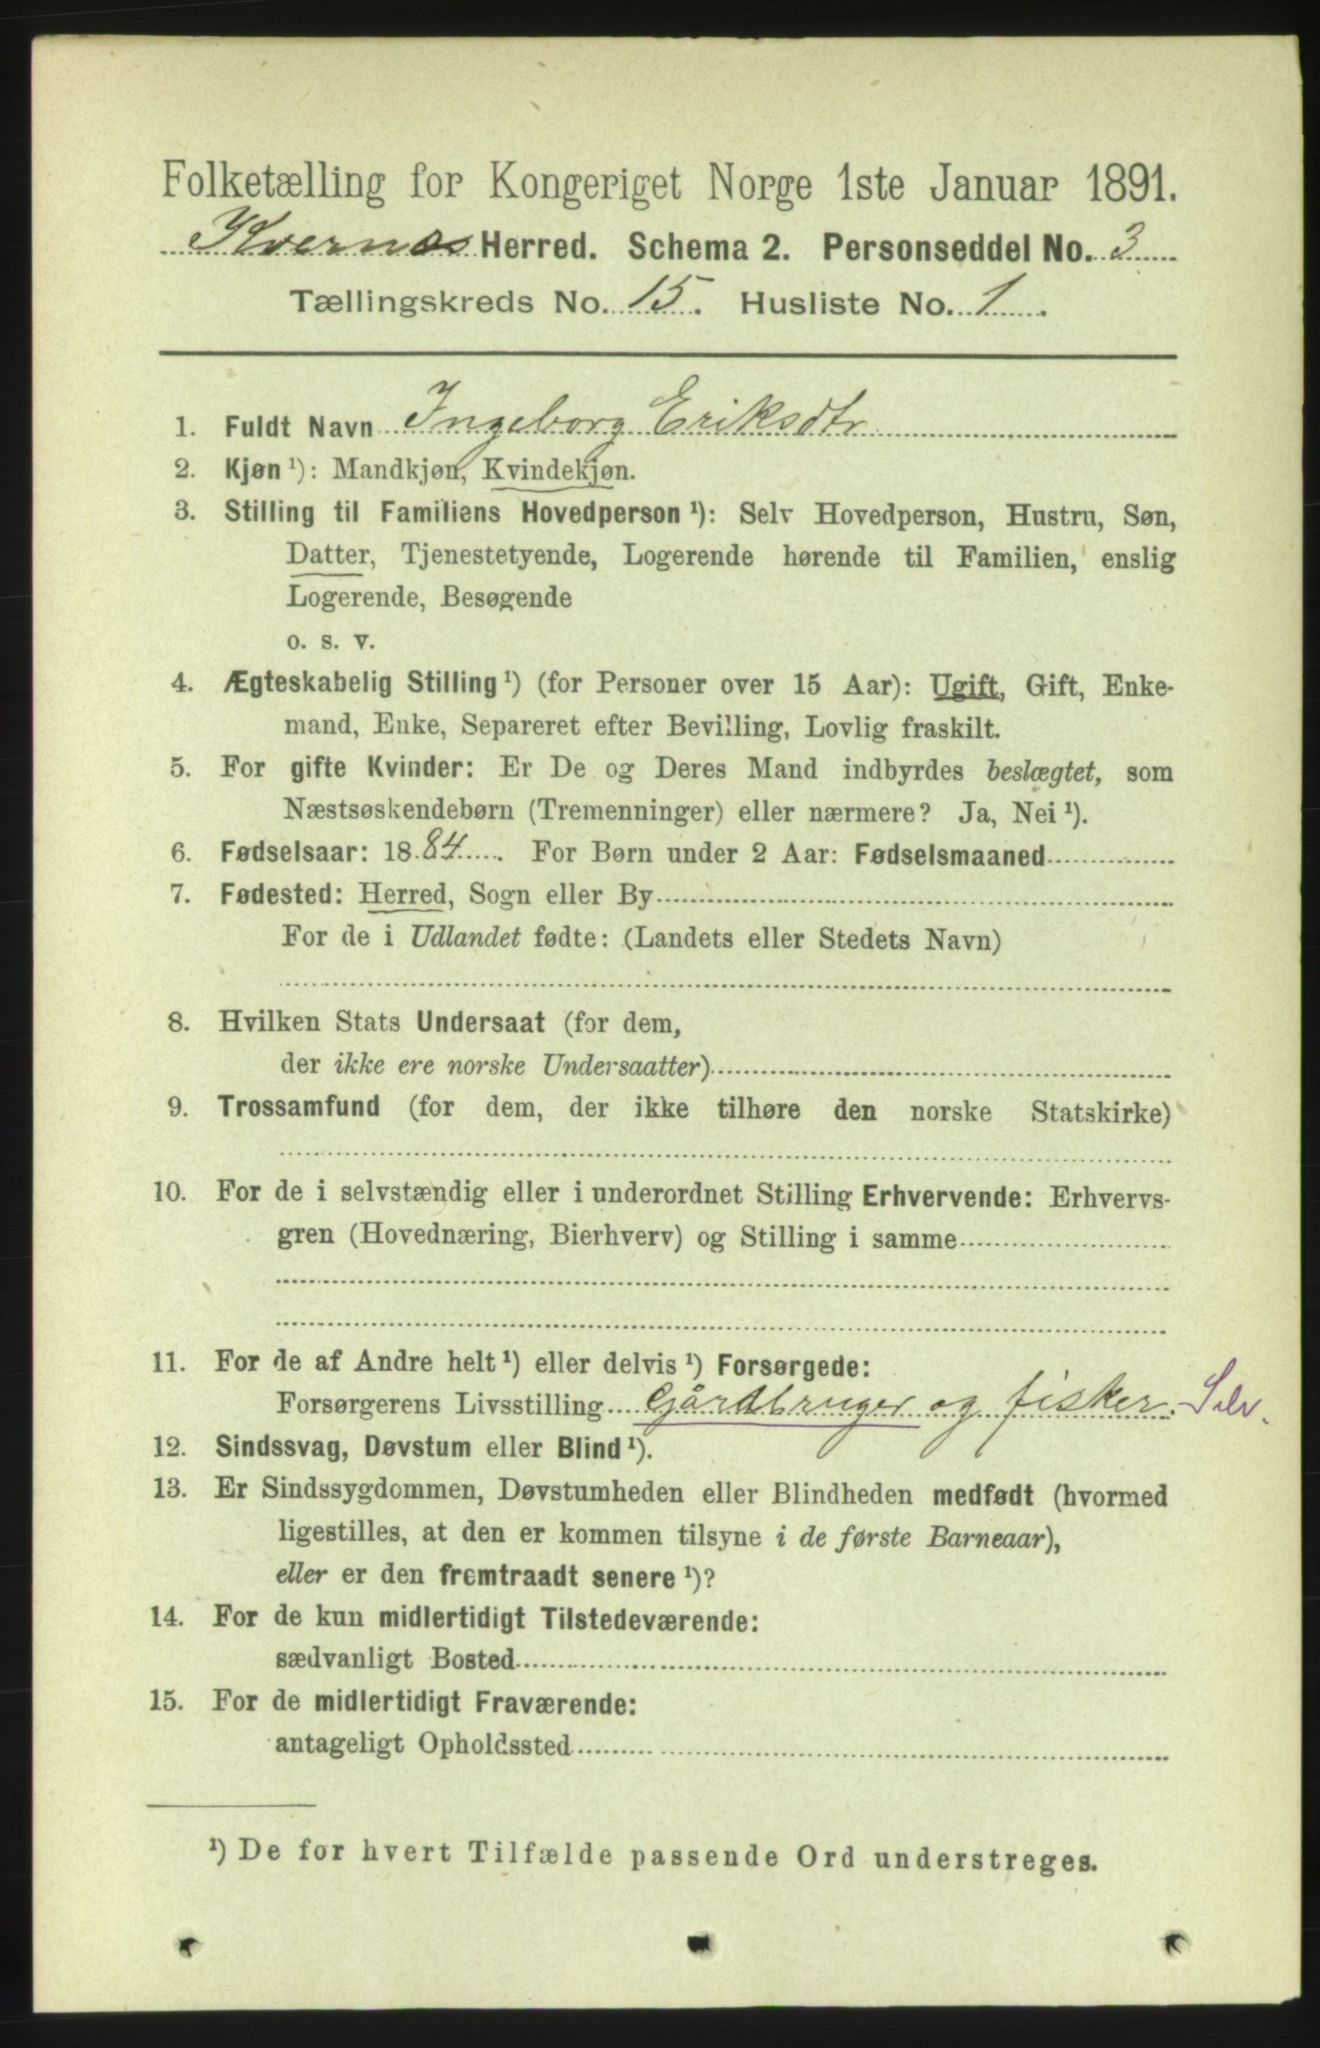 Folketælling for Kongeriget Norge 1ste Januar 1891.
Kvernes Herred. Schema 2. Personseddel No. 3
Tællingskreds No. 15. Husliste No. 1.
1. Fuldt Navn Ingeborg Eriksdtr
2. Kjøn ¹): Mandkjøn, Kvindekjøn.
3. Stilling til Familiens Hovedperson ¹): Selv Hovedperson, Hustru, Søn,
Datter, Tjenestetyende, Logerende hørende til Familien, enslig
Logerende, Besøgende
o. s. v.
4. Ægteskabelig Stilling ¹) (for Personer over 15 Aar): Ugift, Gift, Enke-
mand, Enke, Separeret efter Bevilling, Lovlig fraskilt.
5. For gifte Kvinder: Er De og Deres Mand indbyrdes beslægtet, som
Næstsøskendebørn (Tremenninger) eller nærmere? Ja, Nei ¹).
6. Fødselsaar: 1884. For Børn under 2 Aar: Fødselsmaaned
7. Fødested: Herred, Sogn eller By
For de i Udlandet fødte: (Landets eller Stedets Navn)
8. Hvilken Stats Undersaat (for dem,
der ikke ere norske Undersaatter)
9. Trossamfund (for dem, der ikke tilhøre den norske Statskirke)
10. For de i selvstændig eller i underordnet Stilling Erhvervende: Erhvervs-
gren (Hovednæring, Bierhverv) og Stilling i samme
11. For de af Andre helt ¹) eller delvis ¹) Forsørgede:
Forsørgerens Livsstilling Gårdbruger og fisker. Selv.
12. Sindssvag, Døvstum eller Blind ¹).
13. Er Sindssygdommen, Døvstumheden eller Blindheden medfødt (hvormed
ligestilles, at den er kommen tilsyne i de første Barneaar),
eller er den fremtraadt senere ¹)?
14. For de kun midlertidigt Tilstedeværende:
sædvanligt Bosted
15. For de midlertidigt Fraværende:
antageligt Opholdssted
¹) De for hvert Tilfælde passende Ord understreges.